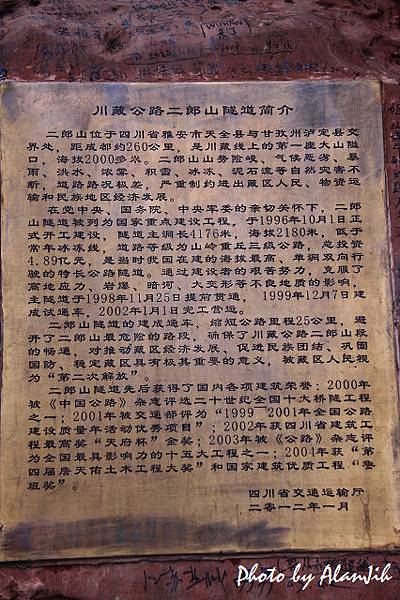 川藏公路二郎山隧道简介
二郎山位于四川省雅安市天全县与甘孜州泸定县交
界处，距成都约260公里，是川藏线上的第一座大山隘
口，海拔2000多米。二郎山山势险峻，气候恶劣，暴
雨、洪水、浓雾、积雪、冰凌、泥石流等自然灾害不
断，道路路况极差，严重制约进出藏区人民、物资运
输和民族地区经济发展。
在党中央、国务院、中央军委的亲切关怀下，二郎
山隧道被列为国家重点建设工程，于1996年10月1日正
式开工建设，隧道主洞长4176米，海拔2180米，低于
常年冰冻线，道路等级为山岭重丘三级公路，总投资
4.89亿元，是当时我国在建的海拔最高、单洞双向行
驶的特长公路隧道。通过建设者的艰苦努力，克服了
高地应力、岩爆、暗河、大变形等不良地质的影响，
主隧道于1998年11月25日提前贯通，1999年12月7日建
成试通车，2002年1月1日完工营运。
二郎山隧道的建成通车，缩短公路里程25公里，避
开了二郎山最危险的路段，确保了川藏公路二郎山段
的畅通，对推动藏区经济发展、促进民族团结、巩固
国防、稳定藏区具有极其重要的意义，被藏区人民视
为“第二次解放”。
二郎山隧道先后获得了国内各项建筑荣誉：2000年
被《中国公路》杂志评选二十世纪全国十大桥隧工程
之一；2001年被交通部评为“1999—2001年全国公路
建设质量年活动优秀项目”；2002年获四川省建筑工
程最高奖“天府杯”金奖；2003年被《公路》杂志评
为全国最具影响力的十五大工程之一；2004年获“第
四届詹天佑土木工程大奖”和国家建筑优质工程“鲁
班奖”。
四川省交通运输厅
二〇一二年一月
Photo by AlanJih